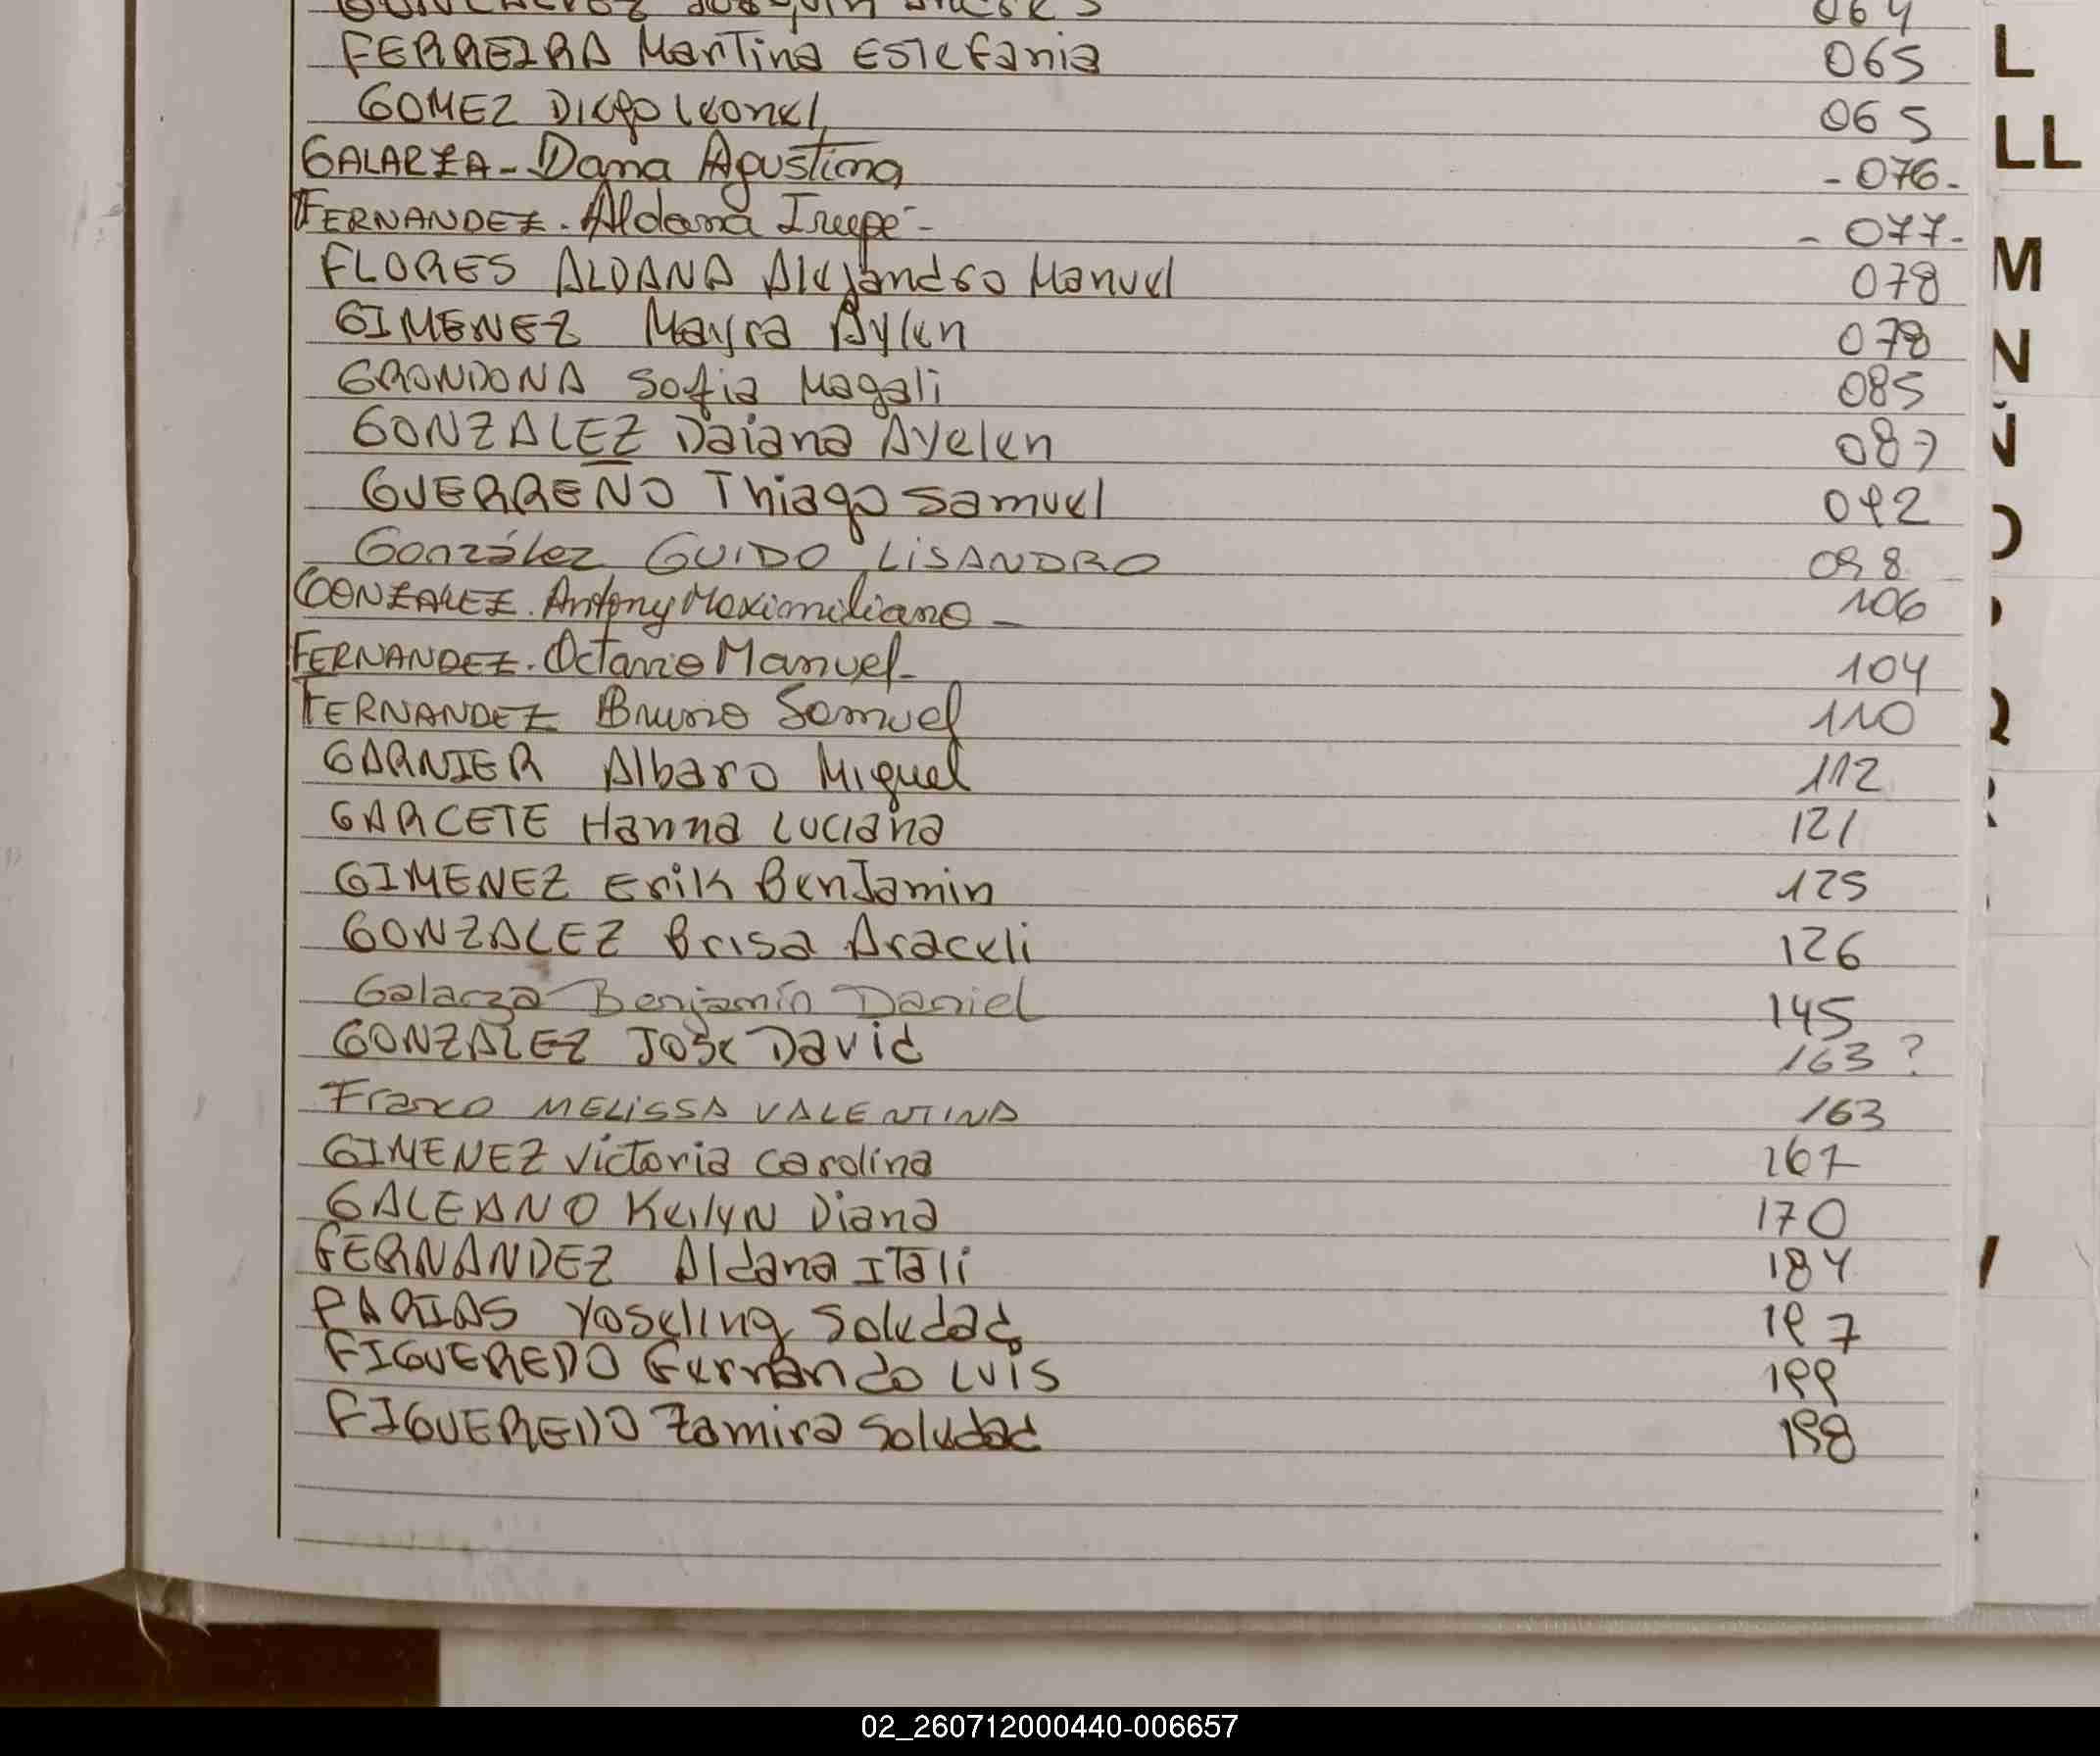 064
FERREIRA Martina Estefania 065
GOMEZ Diego Leonel 065
GALARZA - Dana Agustina - 076 -
FERNANDEZ . Aldana Irupé - - 077 -
FLORES ALDANA Alejandro Manuel 078
GIMENEZ Mayra Aylen 078
GRONDONA Sofia Magali 085
GONZALEZ Daiana Ayelen 087
GUERREÑO Thiago Samuel 092
González GUIDO LISANDRO 098
GONZALEZ . Antony Maximiliano - 106
FERNANDEZ . Octavio Manuel - 104
FERNANDEZ Bruno Samuel 110
GARNIER Albaro Miguel 112
GARCETE Hanna Luciana 121
GIMENEZ Erik Benjamin 125
GONZALEZ Brisa Araceli 126
Galarza Benjamín Daniel 145
GONZALEZ Jose David 163 ?
Franco MELISSA VALENTINA 163
GIMENEZ Victoria Carolina 167
GALEANO Keilyn Diana 170
FERNANDEZ Aldana Itali 184
FARIAS Yoseling Soledad 197
FIGUEREDO Fernando Luis 199
FIGUEREDO Zamira Soledad 198
L
LL
M
N
02_260712000440-006657